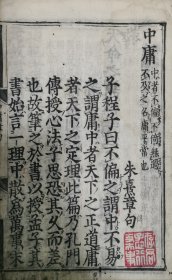 中庸
中者不偏不倚無過
不及之名庸平常也
朱熹章句
子程子曰不偏之謂中不易
之謂庸中者天下之正道庸
者天下之定理此篇乃孔門
傳授心法子思恐其久而差
也故筆之於書以授孟子其
書始言一理中散為萬事末